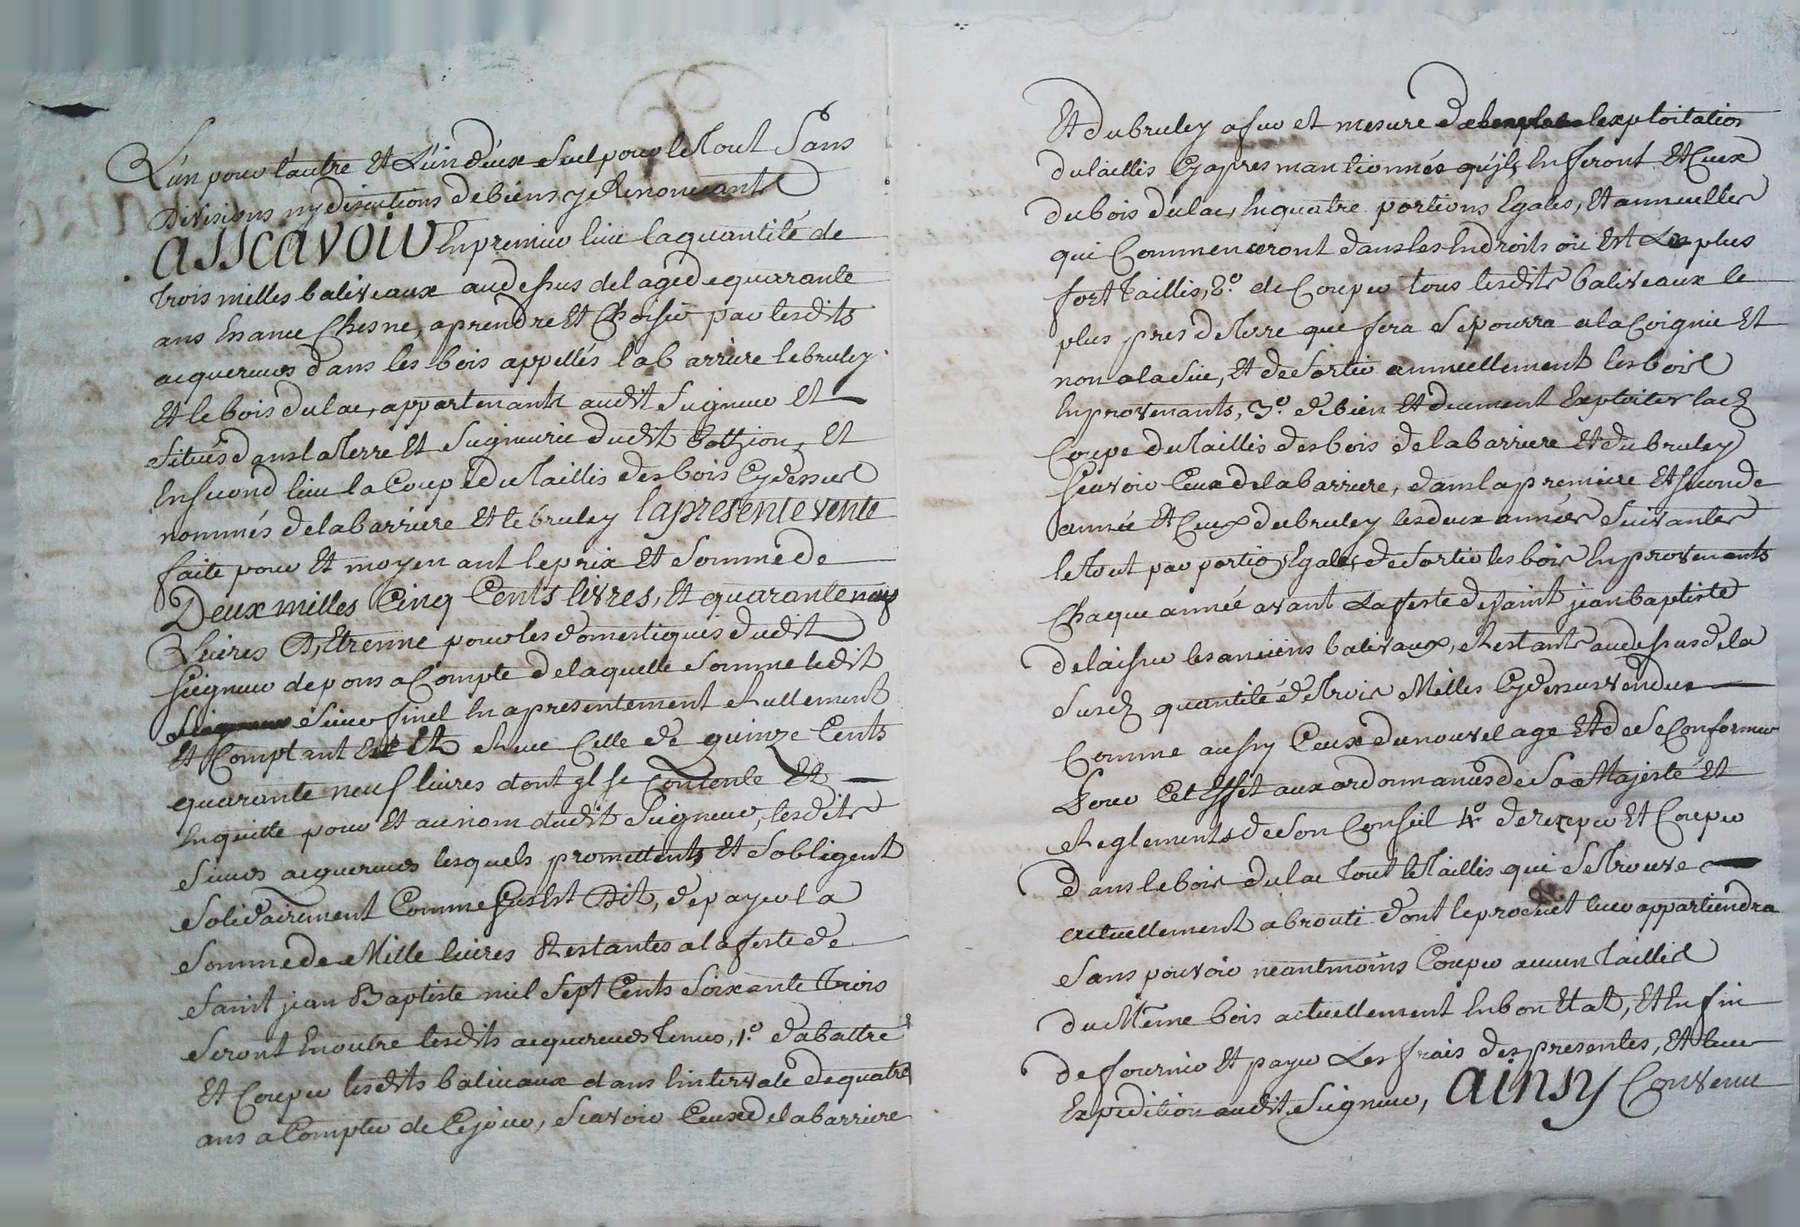 L'un pour l'autre et L'un d'eux seul pour le Tout Sans
Divisions ny discutions de biens y Renonceants
ASSCAVOIR En premier lieu la quantité de
trois milles baliveaux au dessus de l'age de quarrante
ans En ance Chesne, a prendre Et Choisir par lesdits
acquereurs dans les bois appellés l'ab arriere le bruley
Et le bois du lac, appartenants audit Seigneur Et
situés dans la Terre Et Seigneurie dudit Et
En second lieu la Coupe du Taillis des bois Cydessus
nommés de la barriere Et le bruley la presente vente
faite pour Et moyen ant le prix Et Somme de
Deux milles Cinq Cents livres, Et quarante neuf
Livres D'Etrenne pour les domestiques dudit
Seigneur de pons a Compte de laquelle Somme ledit
Seigneur Sieur finel En a presentement Reellement
Et Comptant Et Reçue Celle de quinze Cents
quarante neuf livres dont yl se Contente Et
En quitte pour Et au nom dudit Seigneur, lesdits
Sieurs acquereurs lesquels promettents Et S'obligent
Solidairement Comme Est Dit, de payer la
Somme de Mille livres Restantes a la feste de
Saint jean Baptiste mil Sept Cents Soixante Trois
Seront En outre lesdits acquereurs Tenus, 1.° d'abattre
Et Couper lesdits balivaux dans l'intervale de quatre
ans a Compter de Ce jour, Scavoir Ceux de la barriere
Et du bruley a fur et mesure de l'exploitation
du taillis Cy apres mantionnés qu'jls En feront Et Ceux
du bois du lac, En quatre portions Egales, Et annuelles
qui Commenceront dans les Endroits où Est Le plus
fort Taillis, 2.° de Couper tous lesdits baliveaux le
plus pres de Terre que fera Se pourra a la Coignie Et
non a la Sie, Et de Sortir annuellement les bois
En provenants, 3.° de bien Et duement Exploiter lad.
Coupe du Taillis des bois de la barriere Et du bruley
Scavoir Ceux de la barriere, dans la premiere Et seconde
année Et Ceux du bruley les deux années Suivantes
le Tout par portions Egales, de Sortir les bois En provenants
Chaque année avant La feste de Saint jean baptiste
de laisser les anciens balivaux, Restants au dessus de la
Susd. quantité de Trois Milles Cydessus vendus
Comme aussy Ceux du nouvel age Et de Se Conformer
Pour Cet Effet aux ordonnances de Sa Majesté Et
Reglements de Son Conseil 4.° de receper Et Couper
dans le bois du lac Tout le Taillis qui Se Trouve
actuellement abrouti dont le produit leur appartiendra
Sans pouvoir neantmoins Couper aucun Taillis
du Même bois actuellement En bon Etat, Et En fin
de fournir Et payer Les frais des presentes, Et leur
Expedition audit Seigneur, AINSY Convenu